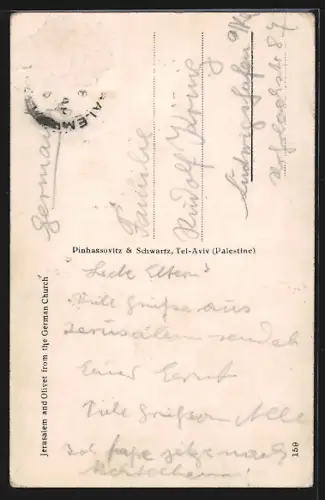 JERUSALEM
Germany
Familie
Rudolf König
Ludwigshafen a/Rh
87
Pinhassovitz & Schwartz, Tel-Aviv (Palestine)
Jerusalem and Olivet from the German Church
159
Liebe Eltern!
Viele Grüße aus
Jerusalem sendet
Euer Ernst
Viele Grüße an Alle
Ich